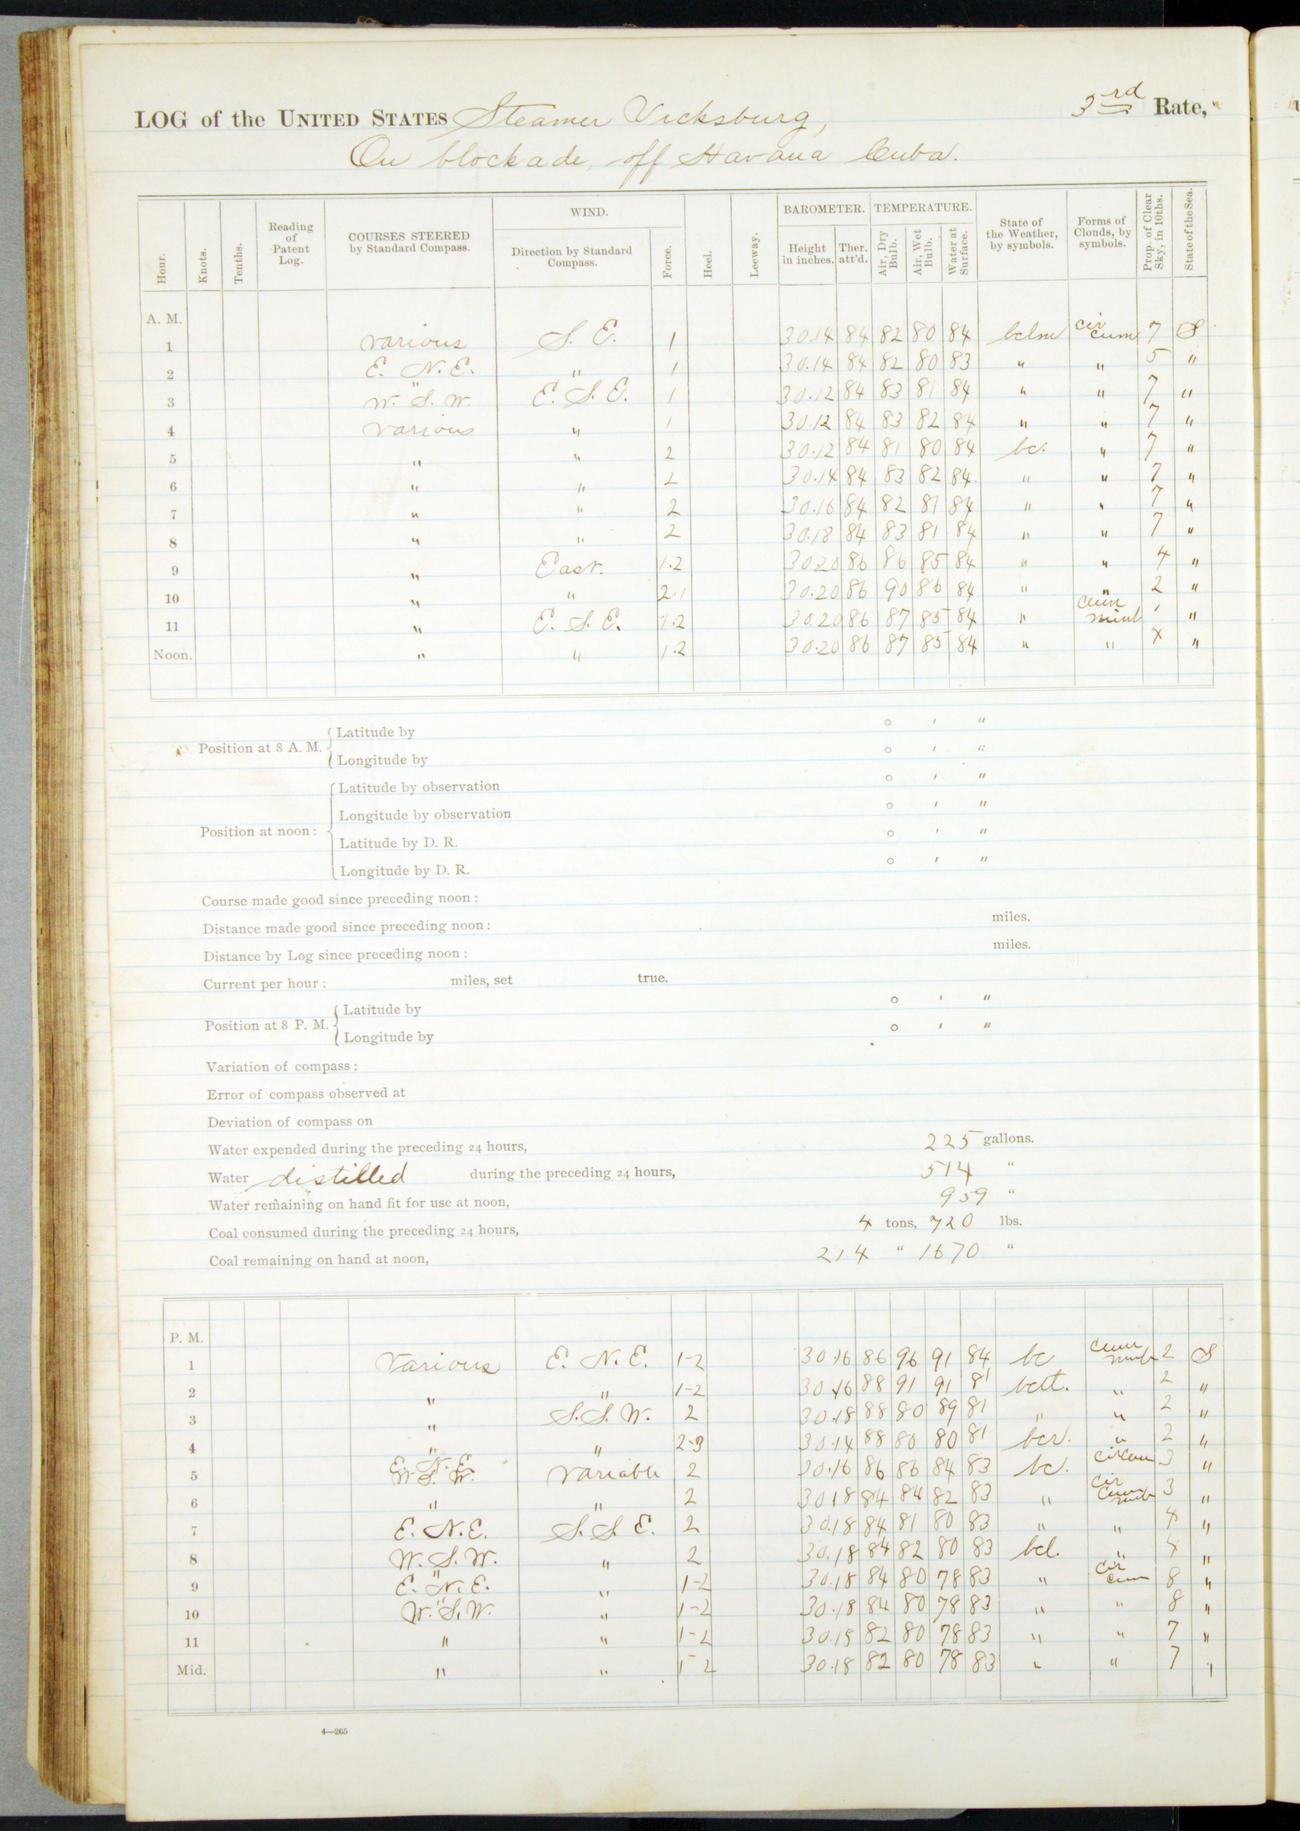 LOG of the UNITED STATES Steamer Vicksburg, 3rd Rate,
On blockade, off Havana Cuba.
Hour. Knots. Tenths. Reading of Patent Log. COURSES STEERED by Standard Compass. WIND. Direction by Standard Compass. Force. Heel. Leeway. BAROMETER. Height in inches. Ther. att'd. TEMPERATURE. Air, Dry Bulb. Air, Wet Bulb. Water at Surface. State of the Weather, by symbols. Forms of Clouds, by symbols. Prop. of Clear Sky, in 10ths. State of the Sea.
A. M.
1 various S. E. 1 30.14 84 82 80 84 bclm cir cum 7 S
2 E. N. E. " 1 30.14 84 82 80 83 " " 5 "
3 W. S. W. E. S. E. 1 30.12 84 83 81 84 " " 7 "
4 various " 1 30.12 84 83 82 84 " " 7 "
5 " " 2 30.12 84 81 80 84 bc. " 7 "
6 " " 2 30.14 84 83 82 84 " " 7 "
7 " " 2 30.16 84 82 81 84 " " 7 "
8 " " 2 30.18 84 83 81 84 " " 7 "
9 " East. 1.2 30.20 86 86 85 84 " " 4 "
10 " " 2.1 30.20 86 90 86 84 " " 2 "
11 " E. S. E. 1.2 30.20 86 87 85 84 " cum 1 "
Noon. " " 1.2 30.20 86 87 85 84 " " 4 "
Position at 8 A. M. Latitude by ° ' "
Longitude by ° ' "
Position at noon: Latitude by observation ° ' "
Longitude by observation ° ' "
Latitude by D. R. ° ' "
Longitude by D. R. ° ' "
Course made good since preceding noon:
Distance made good since preceding noon: miles.
Distance by Log since preceding noon: miles.
Current per hour: miles, set true.
Position at 8 P. M. Latitude by ° ' "
Longitude by ° ' "
Variation of compass:
Error of compass observed at
Deviation of compass on
Water expended during the preceding 24 hours, 225 gallons.
Water distilled during the preceding 24 hours, 514 "
Water remaining on hand fit for use at noon, 959 "
Coal consumed during the preceding 24 hours, 4 tons, 720 lbs.
Coal remaining on hand at noon, 214 " 1670 "
P. M.
1 various E. N. E. 1-2 30.16 86 96 91 84 bc cum 2 S
2 " " 1-2 30.16 88 91 91 81 bctt. " 2 "
3 " S.S.W. 2 30.18 88 80 89 81 " " 2 "
4 " " 2-3 30.14 88 80 80 81 bcr. " 2 "
5 E. N. E. W. S. W. variable 2 30.16 86 86 84 83 bc. 3 "
6 " " 2 30.18 84 84 82 83 " cir cum 3 "
7 E. N. E. S. S. E. 2 30.18 84 81 80 83 " " 4 "
8 W. S. W. " 2 30.18 84 82 80 83 bcl. " 4 "
9 E. N. E. " 1-2 30.18 84 80 78 83 " cir cum 8 "
10 W. S. W. " 1-2 30.18 84 80 78 83 " " 8 "
11 " " 1-2 30.18 82 80 78 83 " " 7 "
Mid. " " 1-2 30.18 82 80 78 83 " " 7 "
4—265